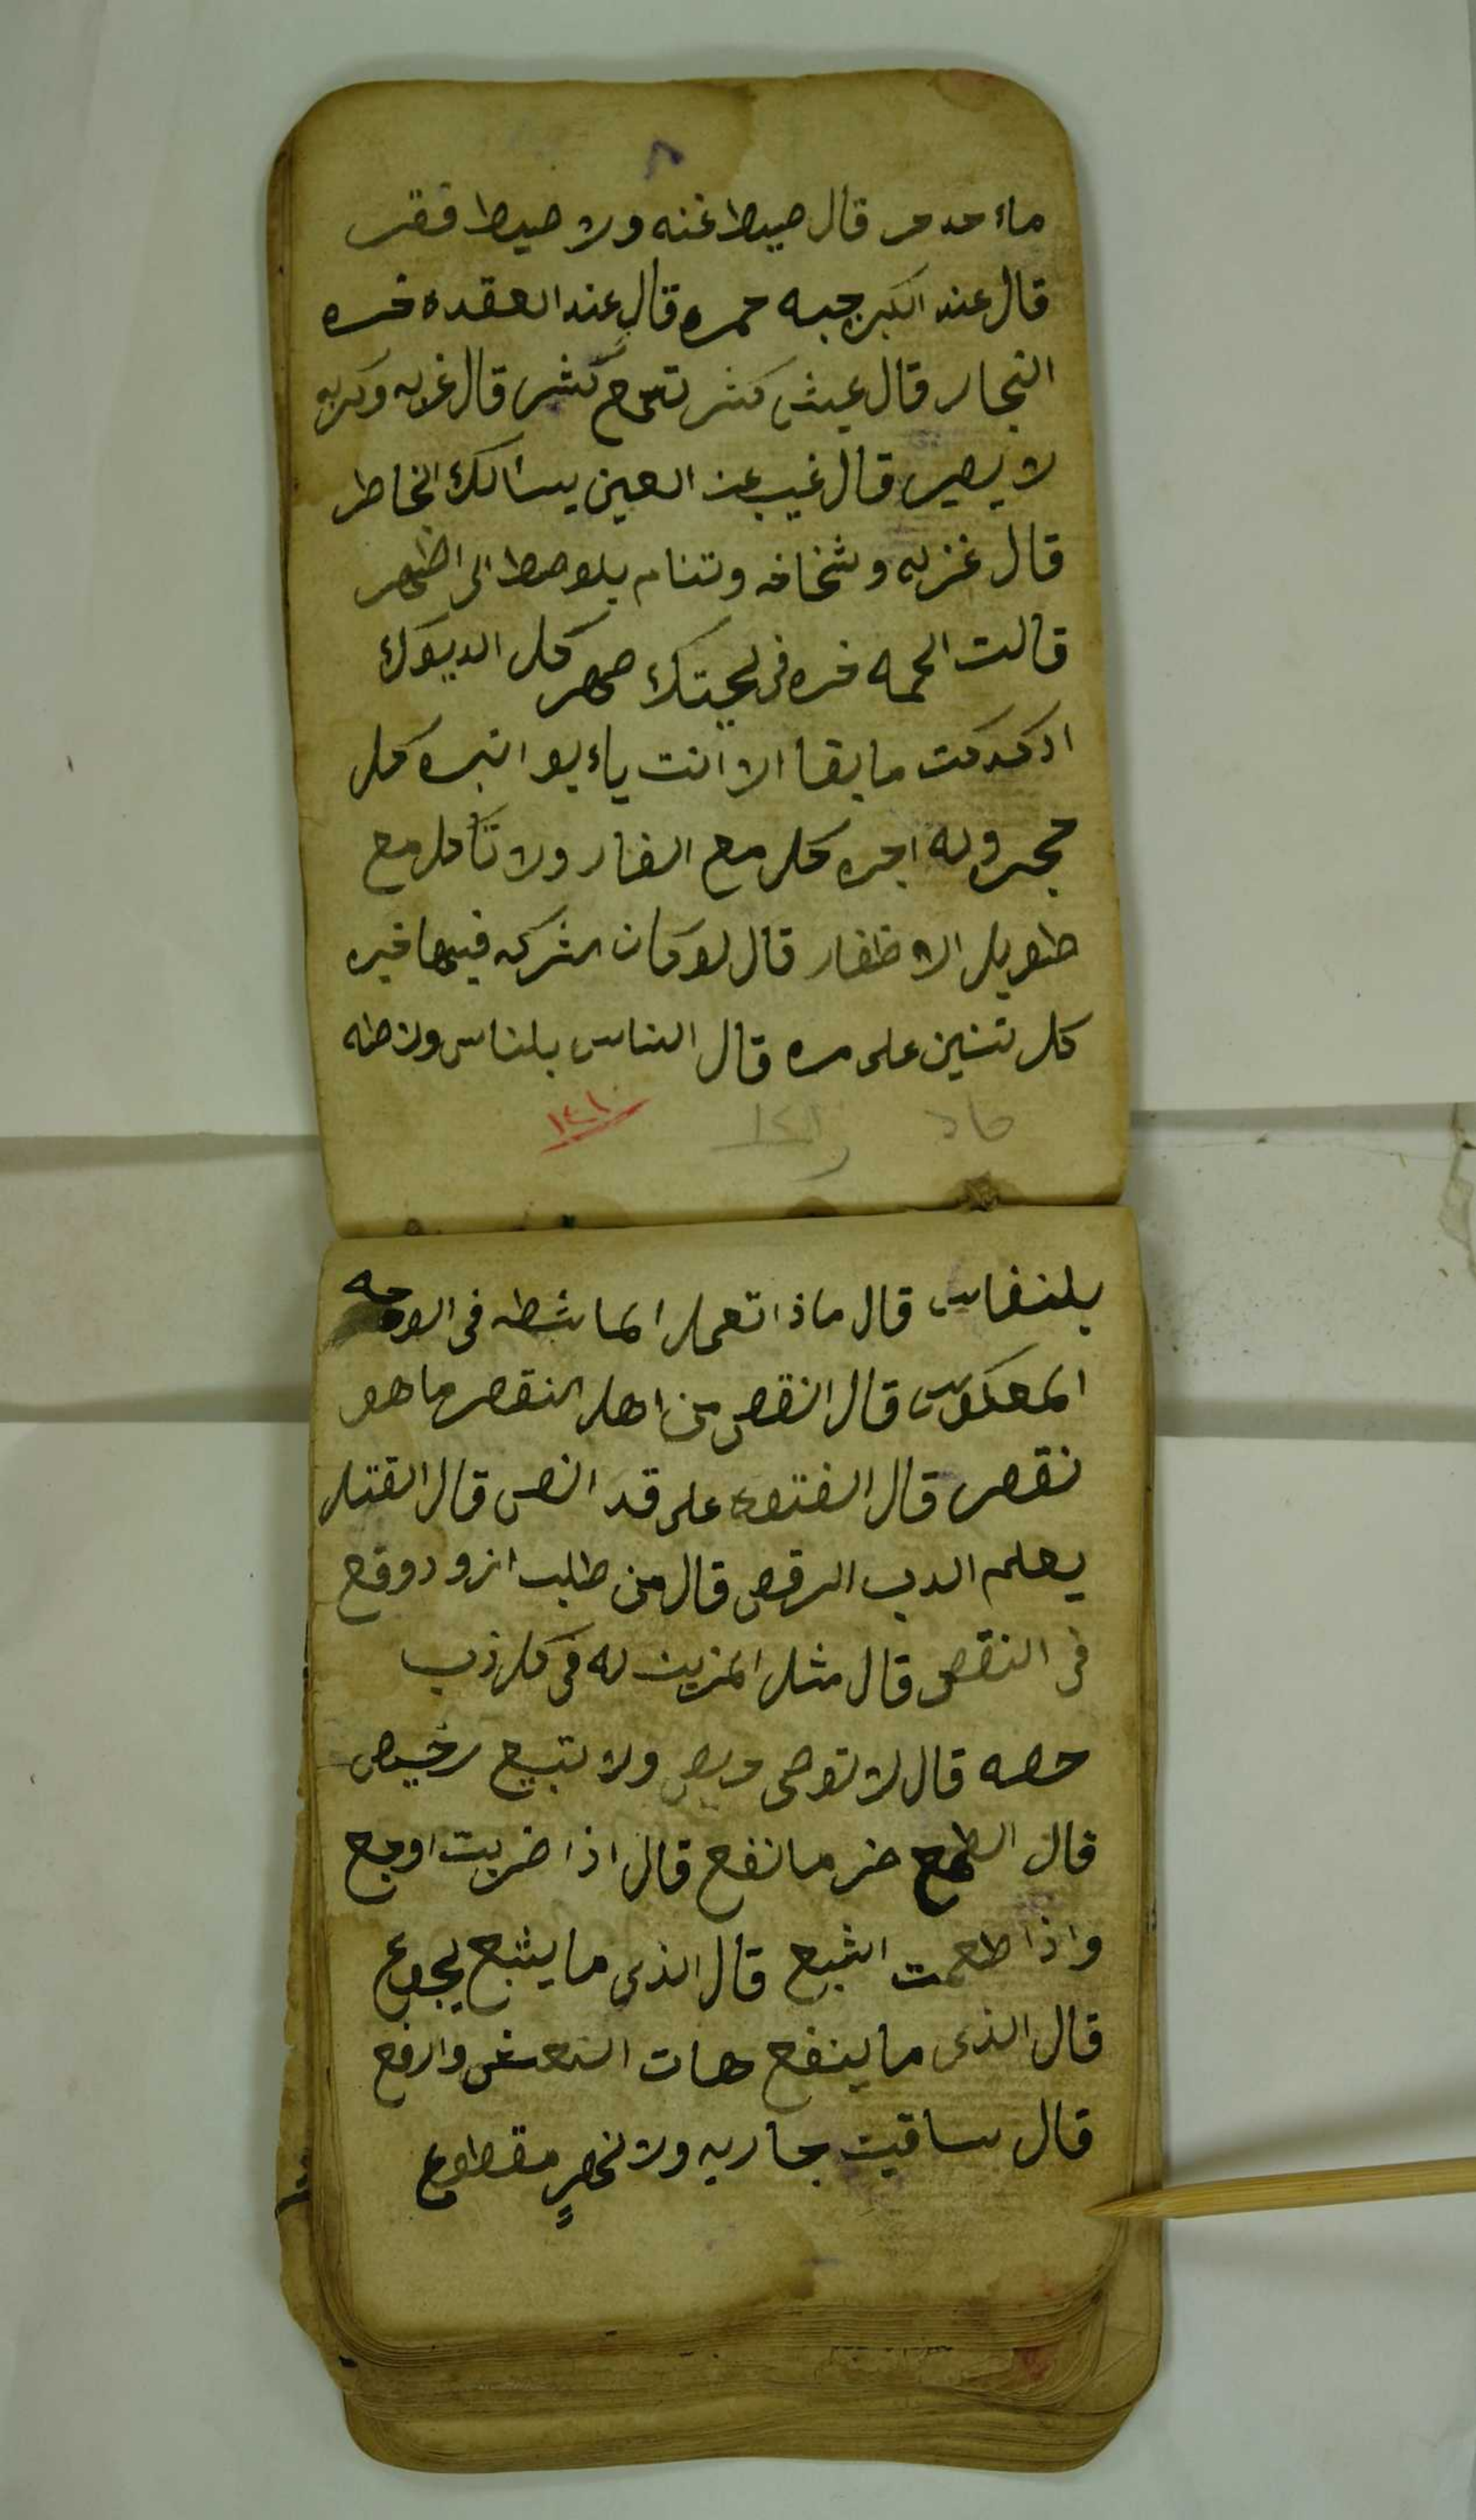 ٨
قال صيط غنه ولا صيط فقر
قال عند الكبر جبه حمره قال عند العقده خره
النجار قال عيش كثر تسمع كثير قال غربه وكربه
لا يصير قال غيب عن العين يسالك الخاطر
قال غزيه وشخاخه وتنام بلوصط الى اظهر
قالت الحمه خره فى لحيتك صهر كل الديوك
ادكدكت ما بقا الا انت ياء بو انبره كلر
حجر وله اجره كل مع الفار ولا تأكل مع
طويل الاظفار قال لو كان الشركه فيها خيره
كل تنين على مره قال الناس بلناس ولاطه
١٤١٠
بلنفاس قال ماذا تعمل الماشطه فى الوجه
المعكوس قال النقص من اهل النقص ما هو
نقص قال الفتوه على قد النص قال القتل
يعلم الدب الرقص قال من طلب الزود وقع
فى النقص قال مثل المزين له فى كل ذب
حصه قال لا توصى وبص ولا تبيع رخيص
قال الطمع ضر ما نفع قال اذا ضربت اوجع
واذا طعمت اشبع قال الذى ما يشبع يجوع
قال الذى ما ينفع هات النعش وارفع
قال ساقيت جاريه ولا نهر مقطوع